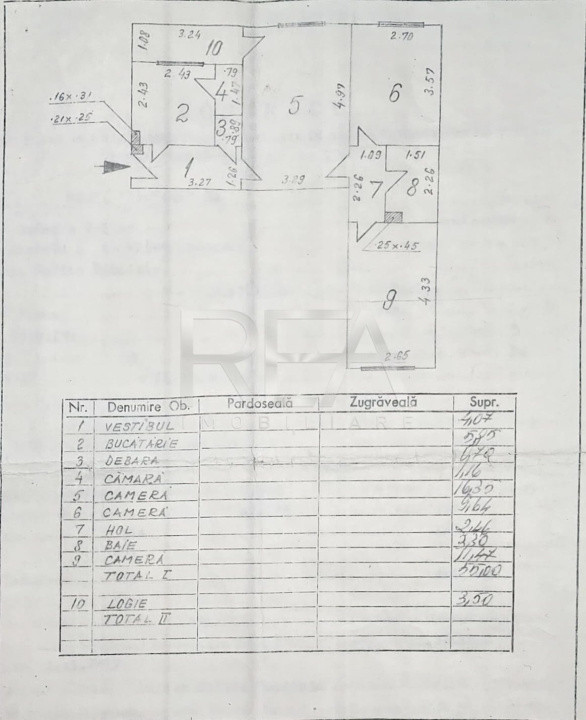 3.24
2.70
1.08
10
2.43
.79
2.43
1.47
4
5
4.97
6
3.57
.16x.31
2
.21x.25
3
.89
.79
1.09
1.51
1
1.26
2.26
7
8
2.26
3.27
3.09
.25x.45
9
4.33
2.65
REA
IMOBILIARE
Nr. Denumire Ob. Pardoseală Zugrăveală Supr.
1 VESTIBUL 4,07
2 BUCĂTĂRIE 5,45
3 DEBARA 0,70
4 CĂMARĂ 1,16
5 CAMERĂ 16,35
6 CAMERĂ 9,64
7 HOL 2,46
8 BAIE 3,30
9 CAMERĂ 11,47
TOTAL I
10 LOGIE 3,50
TOTAL II